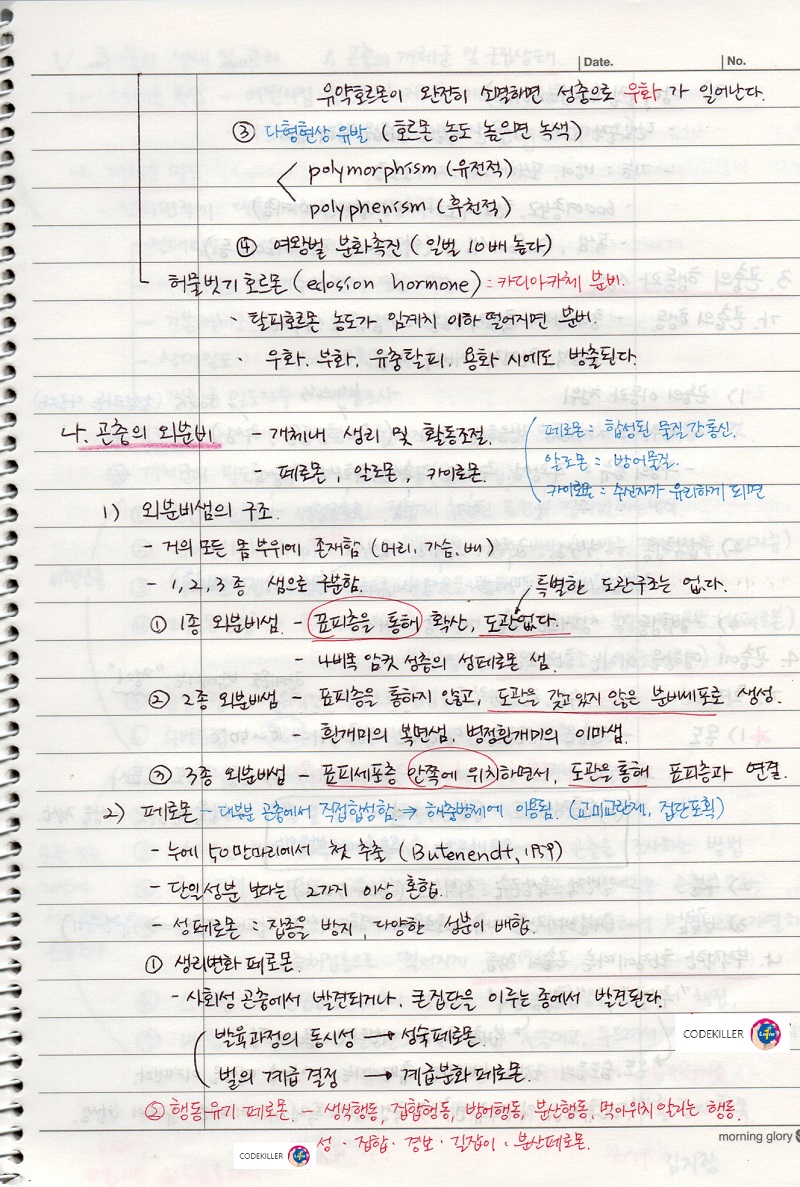 Date. No.
유약호르몬이 완전히 소멸하면 성충으로 우화가 일어난다.
③ 다형현상 유발 (호르몬 농도 높으면 녹색)
polymorphism (유전적)
polyphenism (후천적)
④ 여왕벌 분화촉진 (일벌 10배 높다)
허물벗기 호르몬 (edosion hormone) : 카디아카체 분비.
· 탈피호르몬 농도가 임계치 이하 떨어지면 분비.
· 우화. 부화. 유충탈피. 용화 시에도 방출된다.
나. 곤충의 외분비 - 개체내 생리 및 활동조절.
- 페로몬, 알로몬, 카이로몬.
페로몬 : 합성된 물질간통신.
알로몬 : 방어물질.
카이로몬 : 수신자가 유리하게 되면
1) 외분비샘의 구조.
- 거의 모든 몸 부위에 존재함 (머리, 가슴. 배)
- 1, 2, 3종 샘으로 구분함.
특별한 도관구조는 없다.
① 1종 외분비샘. - 표피층을 통해 확산, 도관없다.
- 나비목 암컷 성충의 성페로몬 샘.
② 2종 외분비샘 - 표피층을 통하지 않고, 도관을 갖고 있지 않은 분비세포로 생성.
- 흰개미의 복면샘, 병정흰개미의 이마샘.
③ 3종 외분비샘 - 표피세포층 안쪽에 위치하면서, 도관을 통해 표피층과 연결.
2) 페로몬 - 대부분 곤충에서 직접합성함. → 해충방제에 이용됨. (교미교란제, 집단포획)
- 누에 50만마리에서 첫 추출 (Butenendt, 1959)
- 단일성분 보다는 2가지 이상 혼합.
- 성페로몬 : 잡종을 방지, 다양한 성분이 배합.
① 생리변화 페로몬.
- 사회성 곤충에서 발견되거나, 큰집단을 이루는 종에서 발견된다.
발육과정의 동시성 → 성숙페로몬.
벌의 계급 결정 → 계급분화페로몬.
② 행동유기 페로몬 - 생식행동, 집합행동, 방어행동, 분산행동, 먹이위치 알리는 행동.
성 · 집합 · 경보 · 길잡이 · 분산페로몬.
CODEKILLER
CODEKILLER
morning glory